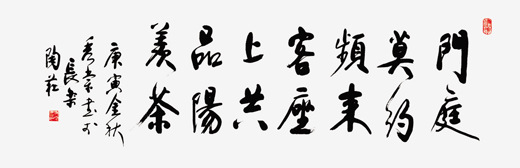 門庭
莫約
頻来
客座
上共
品陽
羡茶
庚寅金秋
秀棠书于
長樂
陶莊